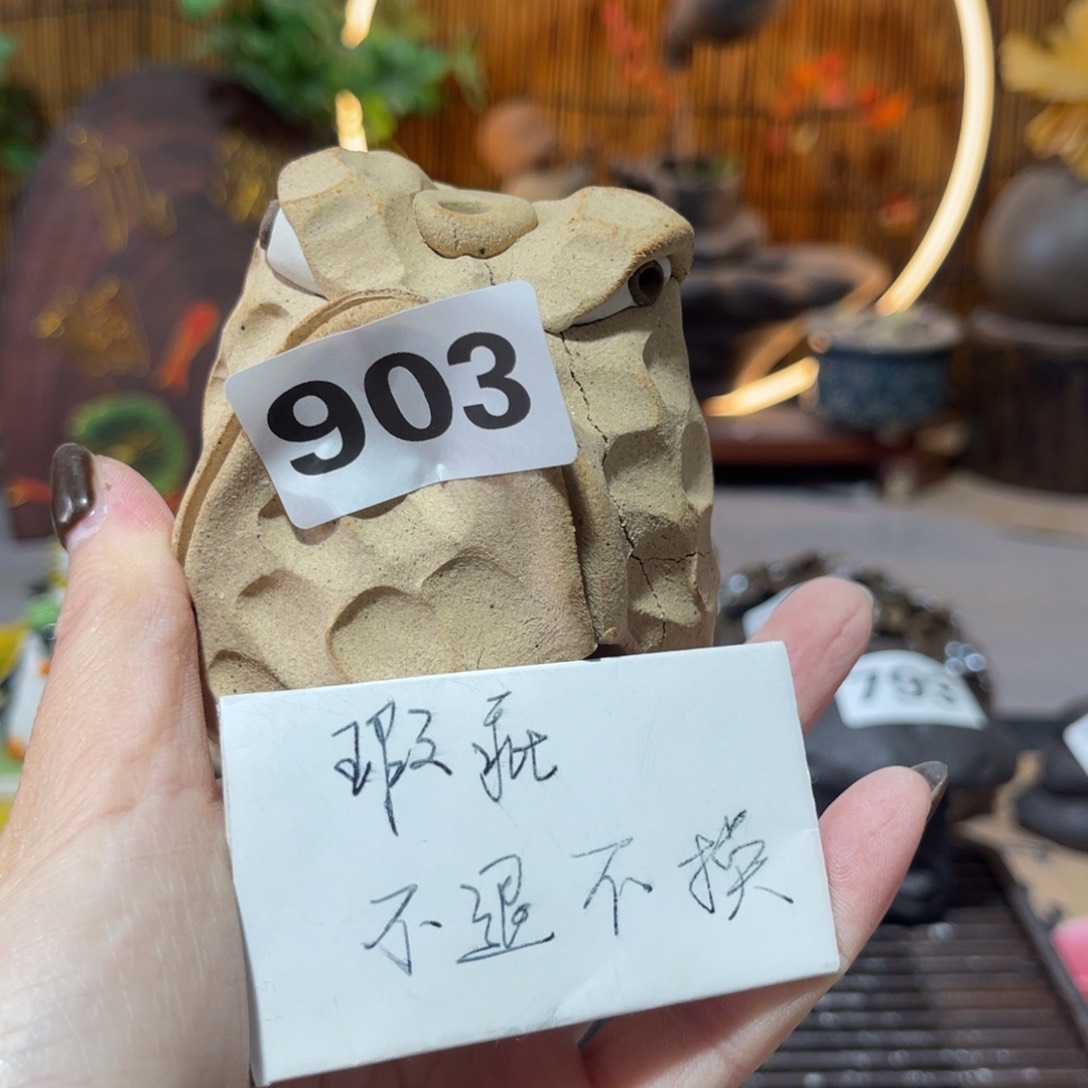 903
瑕疵
不退不换